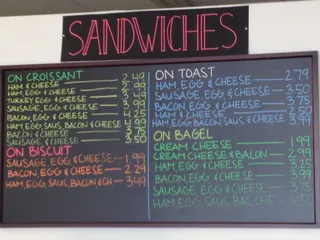 SANDWICHES
ON CROISSANT
HAM & CHEESE 2.49
HAM, EGG & CHEESE 2.99
TURKEY, EGG & CHEESE 3.49
SAUSAGE, EGG & CHEESE 3.99
BACON, EGG & CHEESE 4.25
HAM, EGG, SAUS, BACON & CHEESE 4.99
BACON & CHEESE 3.75
SAUSAGE & CHEESE 3.50
ON BISCUIT
SAUSAGE, EGG & CHEESE 1.99
BACON, EGG & CHEESE 2.29
HAM, EGG, SAUS, BACON & CH 3.49
ON TOAST
HAM, EGG & CHEESE 2.79
SAUSAGE EGG & CHEESE 3.50
BACON EGG & CHEESE 3.75
HAM & CHEESE 2.50
HAM EGG BACON, SAUS & CHEESE 3.99
ON BAGEL
CREAM CHEESE 1.99
CREAM CHEESE & BACON 2.99
HAM, EGG & CHEESE 3.25
BACON, EGG & CHEESE 3.99
SAUSAGE EGG & CHEESE 3.75
HAM, EGG, SAUS, BAC, CHE